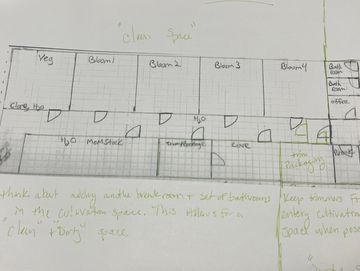 "Clean Space"
Veg Bloom 1 Bloom 2 Bloom 3 Bloom 4 Bath room
Bath room
office
Clone, H2O H2O
H2O MomStock Cure Trim Packaging
think about adding another breakroom + set of bathrooms
in the cultivation space. This allows for a
"Clean" + "Dirty" space.
Keep trimmers
entry cultivation
space when